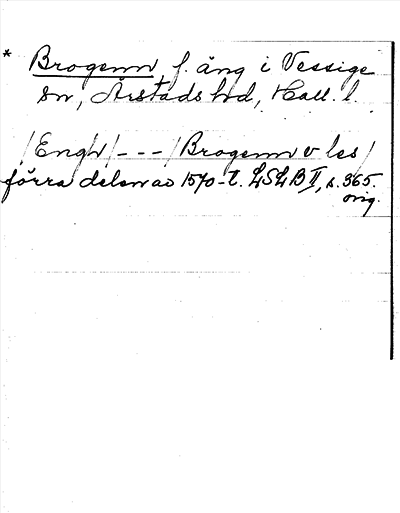 * Brogenn, f. äng i Vessige
sn, Årstads hd, Hall. l.
/Engh/ - - - /Brogenn v les/
förra delen av 1570-t. LSLB II, s. 365.
orig.